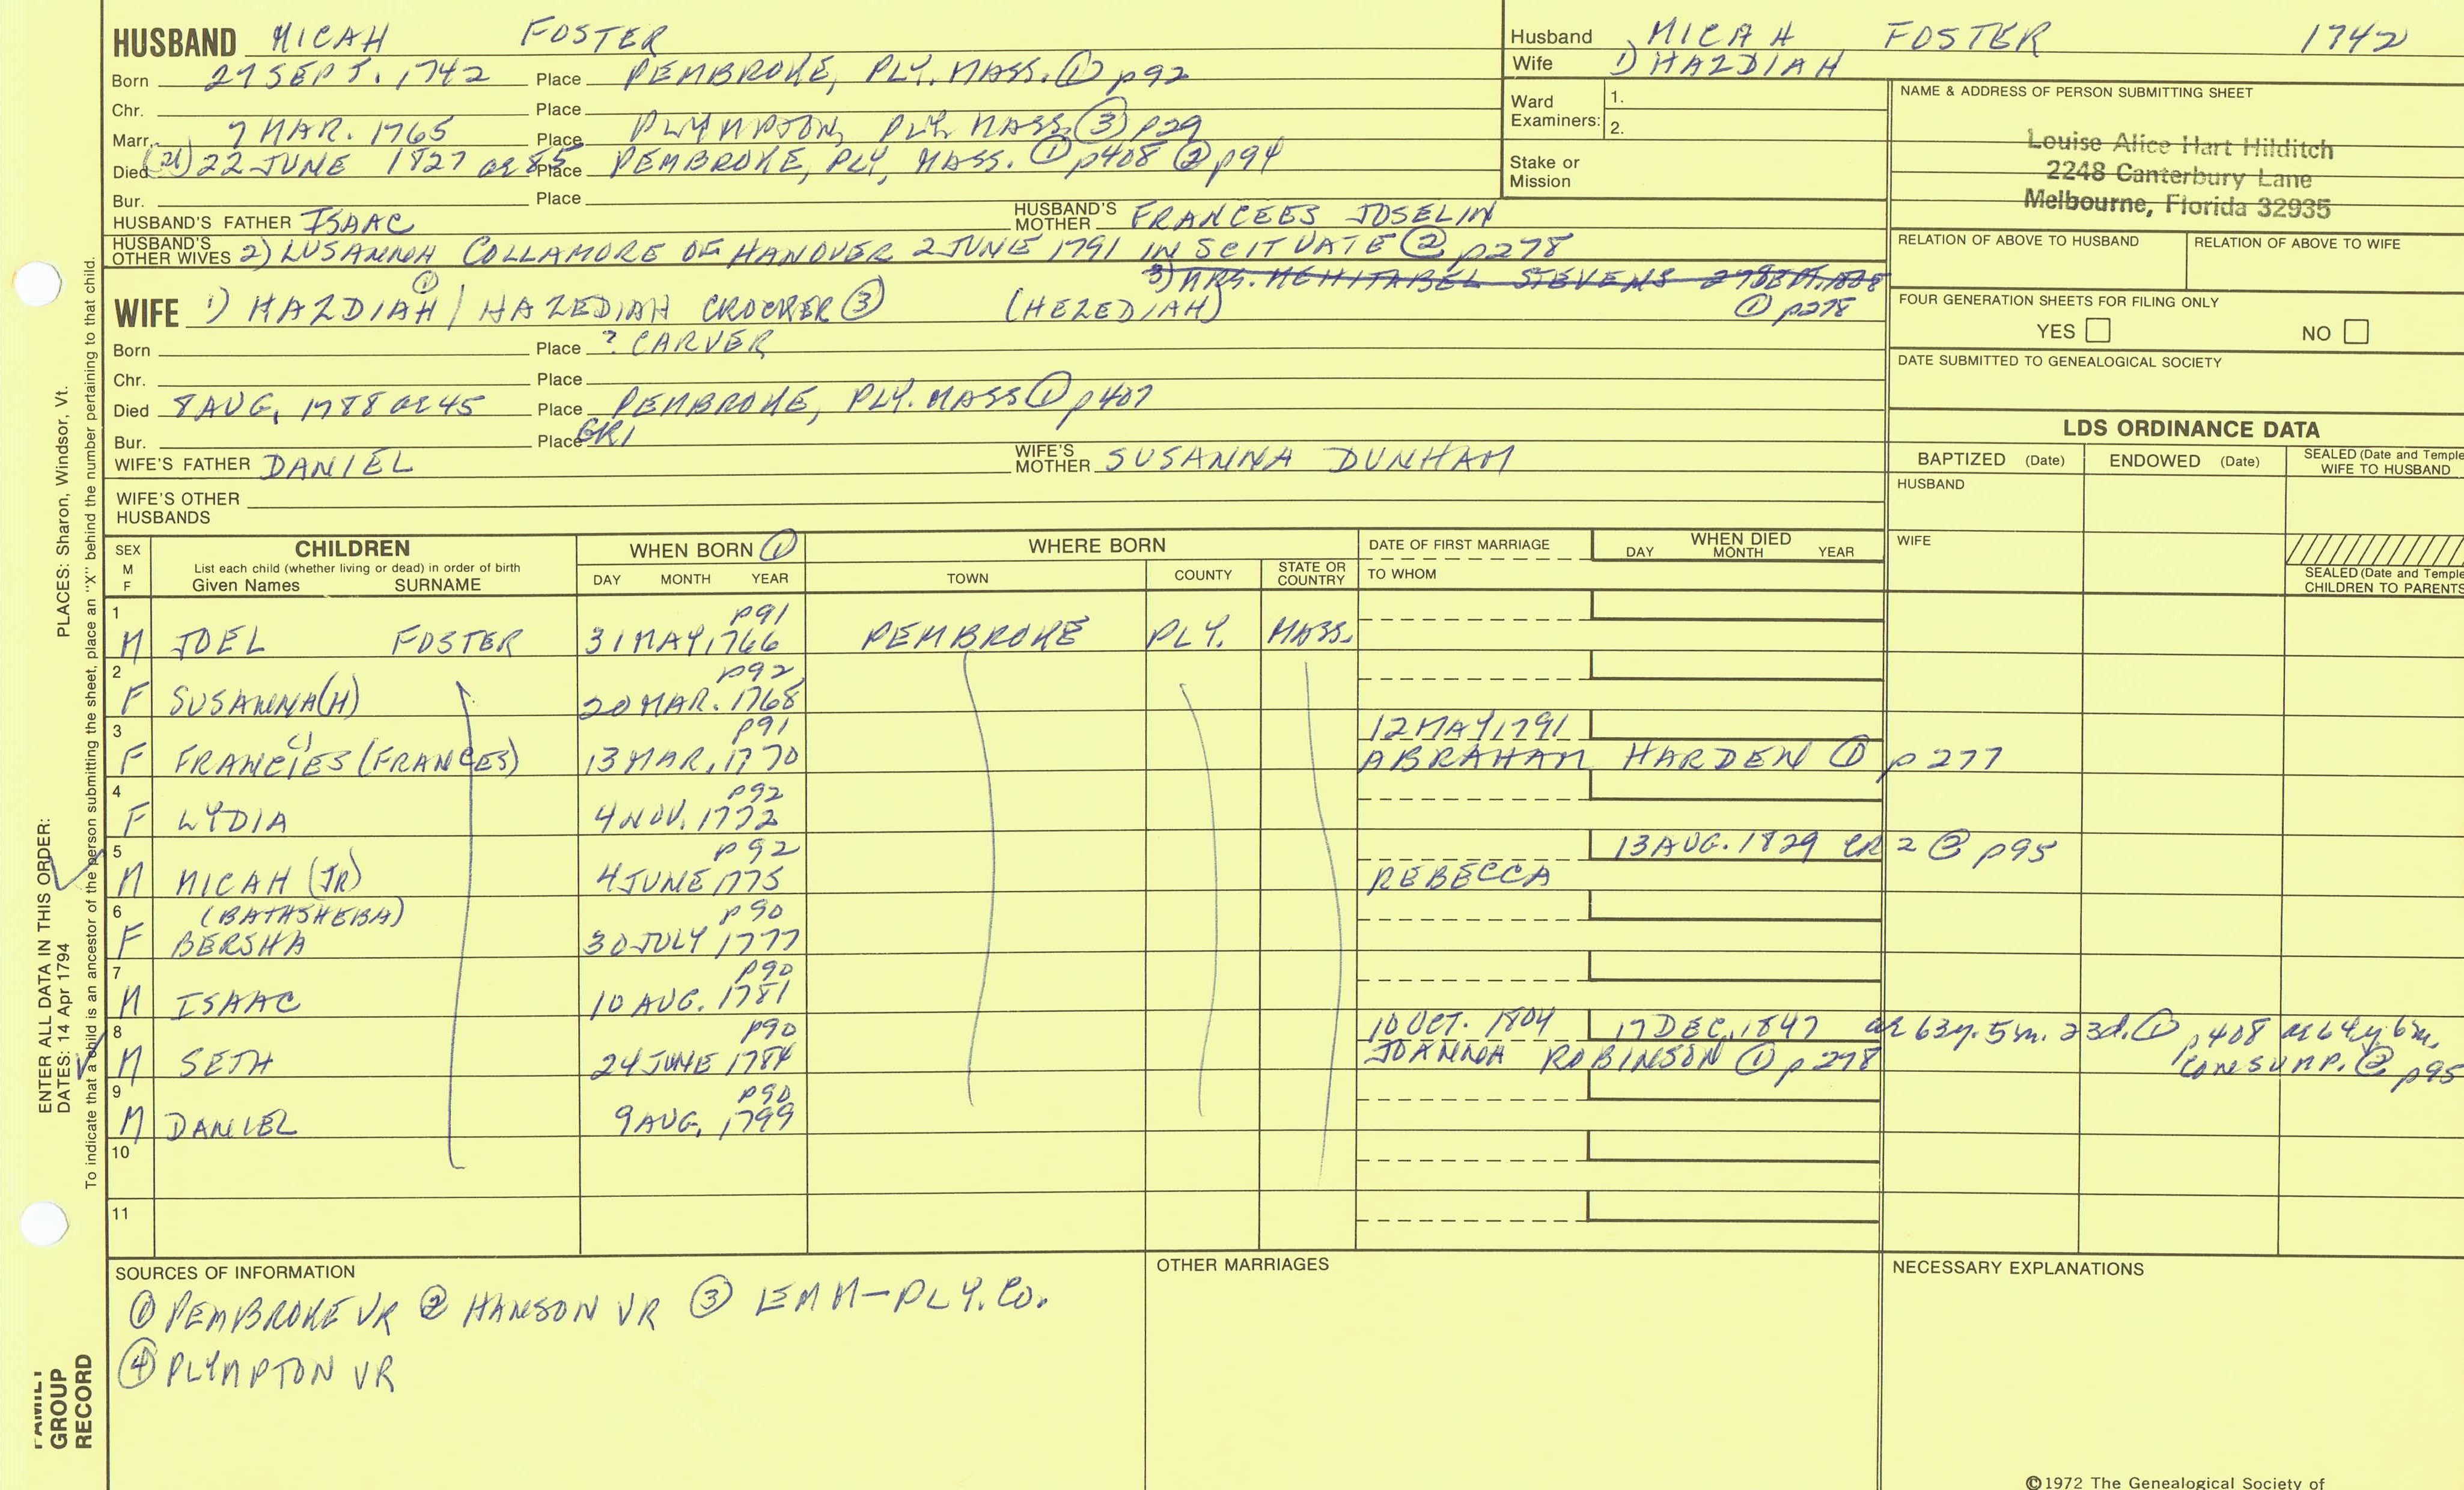 HUSBAND MICAH FOSTER
Born 27 SEPT. 1742 Place PEMBROKE, PLY. MASS. ① p92
Chr. Place
Marr. 7 MAR. 1765 Place PLYMPTON, PLY. MASS. ③ p29
Died (21) 22 JUNE 1827 ae 85 Place PEMBROKE, PLY, MASS. ① p408 ② p94
Bur. Place
HUSBAND'S FATHER ISAAC HUSBAND'S MOTHER FRANCEES JOSELIN
HUSBAND'S OTHER WIVES 2) LUSANNA COLLAMORE OF HANOVER 2 JUNE 1791 IN SCITUATE ② p278
3) MRS. MEHITABEL STEVENS
① p278
WIFE 1) HAZDIAH ① / HAZEDIAH CROCKER ③ (HEZEDIAH)
Born Place ? CARVER
Chr. Place
Died 8 AUG. 1788 ae 45 Place PEMBROKE, PLY. MASS ① p407
Bur. Place GR1
WIFE'S FATHER DANIEL WIFE'S MOTHER SUSANNA DUNHAM
WIFE'S OTHER HUSBANDS
Husband MICAH FOSTER 1742
Wife 1) HAZDIAH
Ward Examiners: 1.
2.
Stake or Mission
NAME & ADDRESS OF PERSON SUBMITTING SHEET
Louise Alice Hart Hilditch
2248 Canterbury Lane
Melbourne, Florida 32935
RELATION OF ABOVE TO HUSBAND RELATION OF ABOVE TO WIFE
FOUR GENERATION SHEETS FOR FILING ONLY
YES NO
DATE SUBMITTED TO GENEALOGICAL SOCIETY
LDS ORDINANCE DATA
BAPTIZED (Date) ENDOWED (Date) SEALED (Date and Temple
WIFE TO HUSBAND
HUSBAND
WIFE
SEALED (Date and Temple
CHILDREN TO PARENTS
SEX M F CHILDREN WHEN BORN ① WHERE BORN DATE OF FIRST MARRIAGE WHEN DIED
List each child (whether living or dead) in order of birth
Given Names SURNAME DAY MONTH YEAR TOWN COUNTY STATE OR COUNTRY TO WHOM DAY MONTH YEAR
1 p91
M JOEL FOSTER 31 MAY, 1766 PEMBROKE PLY. MASS.
2 p92
F SUSANNA(H) 20 MAR. 1768
3 p91 12 MAY 1791
F FRANCIES (FRANCES) 13 MAR, 1770 ABRAHAM HARDEN ① p277
4 p92
F LYDIA 4 NOV. 1772
5 p92 13 AUG. 1829 CR 2 ② p95
M MICAH (JR) 4 JUNE 1775 REBECCA
6 (BATHSHEBA) p90
F BERSHA 30 JULY 1777
7 p90
M ISAAC 10 AUG. 1781
8 p90 10 OCT. 1804 17 DEC. 1847 ae 63y. 5m. 23d. ① p408 ae 64y 6m.
M SETH 24 JUNE 1784 JOANNA ROBINSON ① p278 consump. ② p95
9 p90
M DANIEL 9 AUG, 1799
10
11
SOURCES OF INFORMATION
① PEMBROKE VR ② HANSON VR ③ EMM-PLY. Co.
④ PLYMPTON VR
OTHER MARRIAGES
NECESSARY EXPLANATIONS
©1972 The Genealogical Society of
PLACES: Sharon, Windsor, Vt.
To indicate that a child is an ancestor of the person submitting the sheet, place an "X" behind the number pertaining to that child.
ENTER ALL DATA IN THIS ORDER:
DATES: 14 Apr 1794
FAMILY
GROUP
RECORD